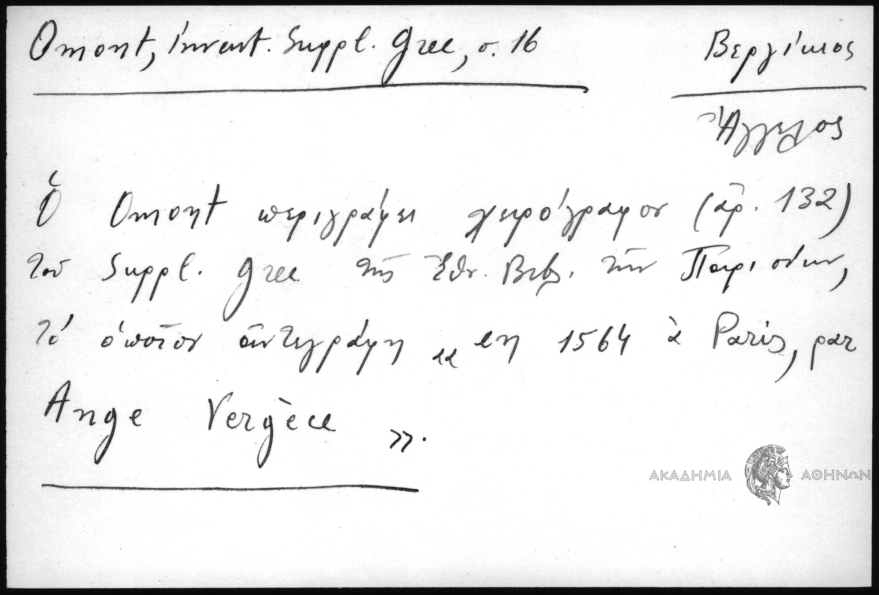 Omont, invent. Suppl. Grec, σ. 16
Βεργίκιος
Ἄγγελος
Ὁ Omont περιγράφει χειρόγραφον (ἀρ. 132)
τοῦ Suppl. Grec τῆς Ἐθν. Βιβλ. τῶν Παρισίων,
τὸ ὁποῖον ἀντεγράφη „ en 1564 à Paris, par
Ange Vergèce ».
ΑΚΑΔΗΜΙΑ ΑΘΗΝΩΝ